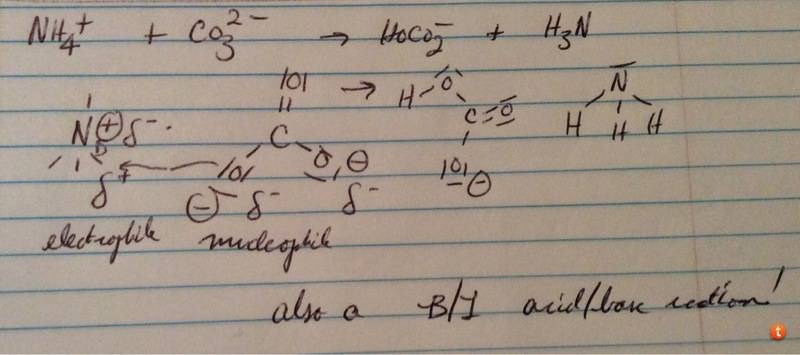 NH₄⁺ + CO₃²⁻ → HOCO₂⁻ + H₃N
|O| → H O N
N ⊕ δ⁻ C C = O H H H
δ⁺ |O| O ⊖ |O| ⊖
⊖ δ⁻ δ⁻
electrophile nucleophile
also a B/L acid/base reaction!
t